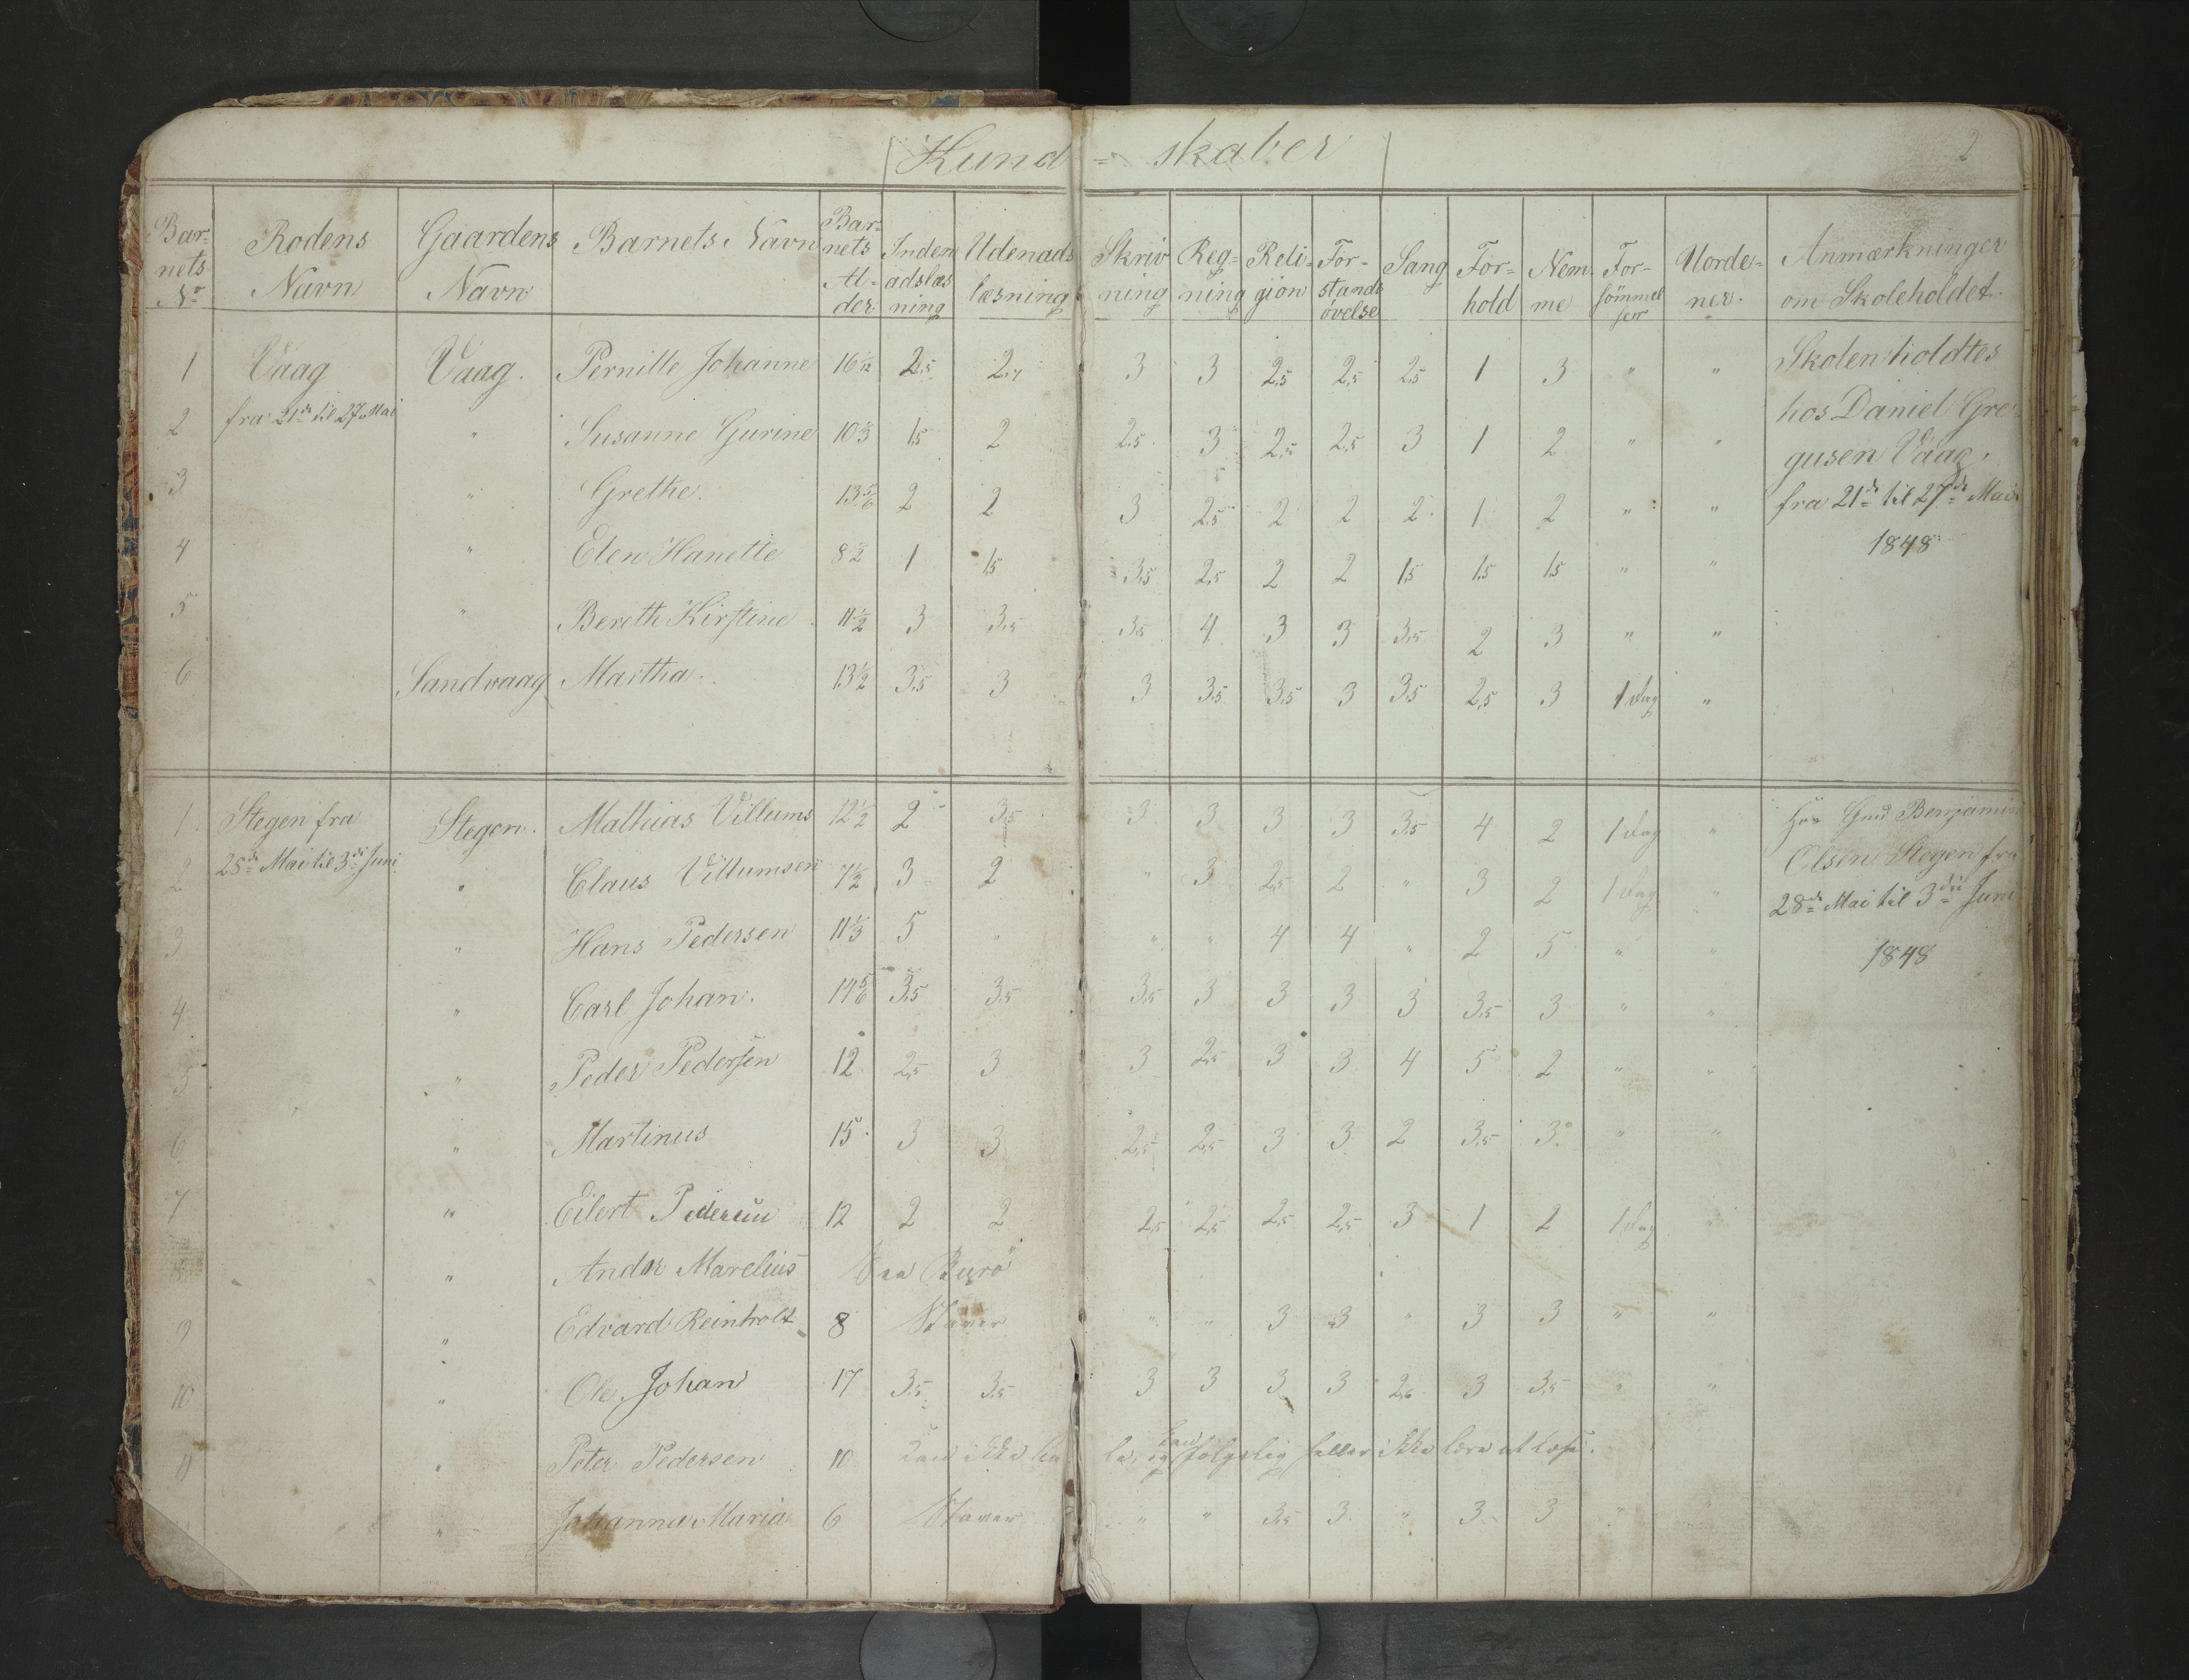 Kund = skaber 2
Bar- nets No | Rodens Navn | Gaardens Navn | Barnets Navn | Bar- nets Al- der | Inden adslæs ning | Udenads læsning | Skriv ning | Reg- ning | Reli- gion | For- stands øvelse | Sang | For- hold | Nem me | For- sömmel ser | Uorde- ner. | Anmærkninger om Skoleholdet.
1 Vaag Vaag. Pernille Johanne 16 1/12 2,5 2,7 3 3 2,5 2,5 2,5 1 3 " " Skolen holdtes
2 fra 21de til 27 Mai " Susanne Gurine 10 1/3 1,5 2 2,5 3 2,5 2,5 3 1 2 " " hos Daniel Gre-
gusen Vaag,
3 " Grethe. 13 5/6 2 2 3 2,5 2 2 2 1 2 " " fra 21de til 27de Mai
4 " Elen Hanette 8 1/2 1 1,5 3,5 2,5 2 2 1,5 1,5 1,5 " " 1848
5 " Bereth Kirstine 11 1/2 3 3,5 3,5 4 3 3 3,5 2 3 " "
6 Sandvaag Martha. 13 1/2 3,5 3 3 3,5 3,5 3 3,5 2,5 3 1 Dag "
1. Stegen fra Stegen. Mathias Villums 12 1/2 2 3,5 3 3 3 3 3,5 4 2 1 Dag " Hos Gmd Benjamin
2 28de Mai til 3die Juni " Claus Villumsen 7 1/2 3 2 " 3 2,5 2 " 3 2 1 Dag " Olsen Stegen fra
28de Mai til 3die Juni
3 " Hans Pedersen 11 1/3 5 " " " 4 4 " 2 5 " " 1848
4 " Carl Johan. 14 5/6 3,5 3,5 3,5 3 3 3 3 3,5 3 " "
5 " Peder Pedersen 12 2,5 3 3 2,5 3 3 4 5 2 " "
6 " Martinus 15 3 3 2,5 2,5 3 3 2 3,5 3 " "
7 " Eilert Pedersen 12 2 2 2,5 2,5 2,5 2,5 3 1 2 1 Dag "
8 " Andor Marelius
9 " Edvard Reinholt 8 Staver " " 3 3 " 3 3 " "
10 " Ole Johan 17 3,5 3,5 3 3 3 3 2,6 3 3,5 " "
11 " Peter Pedersen 10 Kan ikke ta le, og kan følgelig heller ikke lære at læse.
" Johanna Maria 6 Staver " " 3,5 3 " 3 3 " "